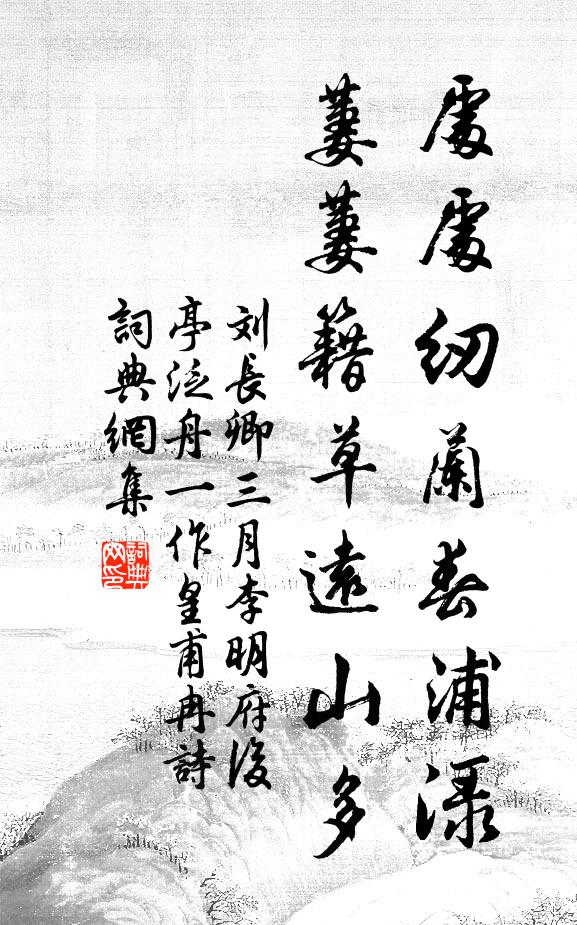 處處紉蘭春浦渌
萋萋籍草遠山多
刘長卿三月李明府後
亭泛舟一作皇甫冉詩
詞典網集
詞典
网印